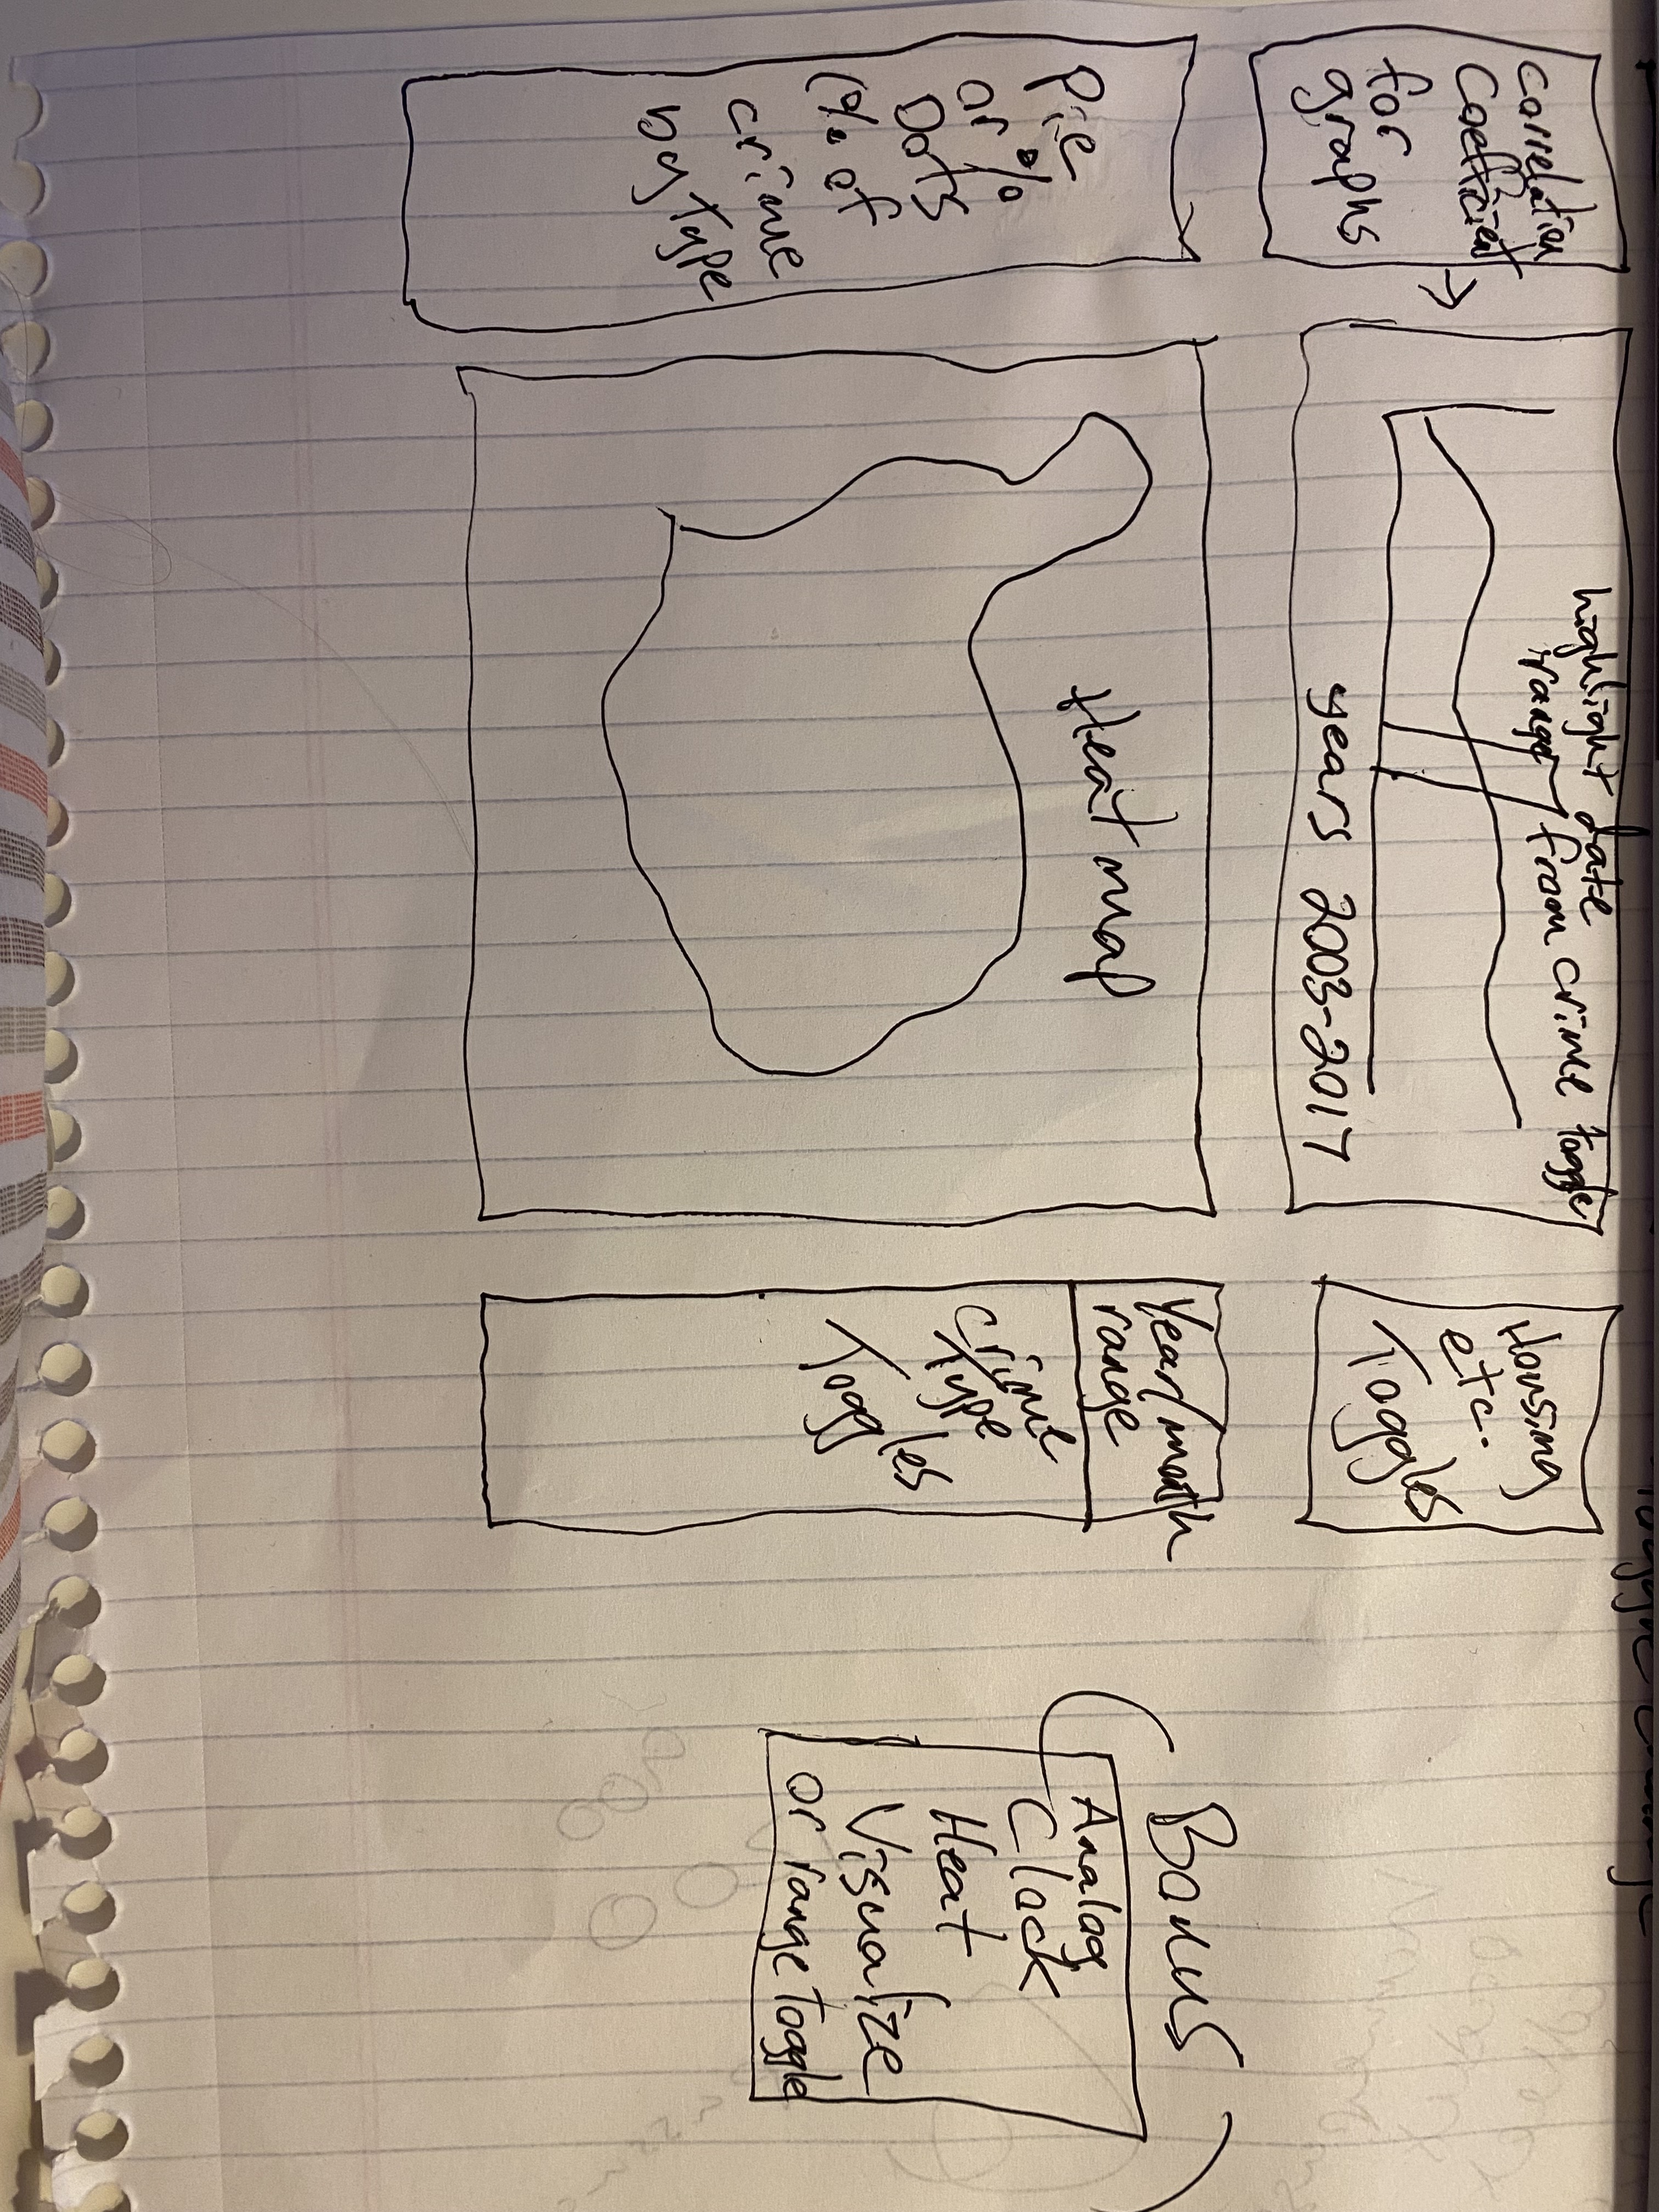 Correlation
Coefficient
for
graphs
highlight date
range from crime toggle
years 2003-2017
Housing
etc.
Toggles
Pie
or %
Dots
(% of
crime
by type
Heat map
Year/month
range
Crime
Type
Toggles
Bonus
Analog
Clock
Heat
Visualize
or range toggle